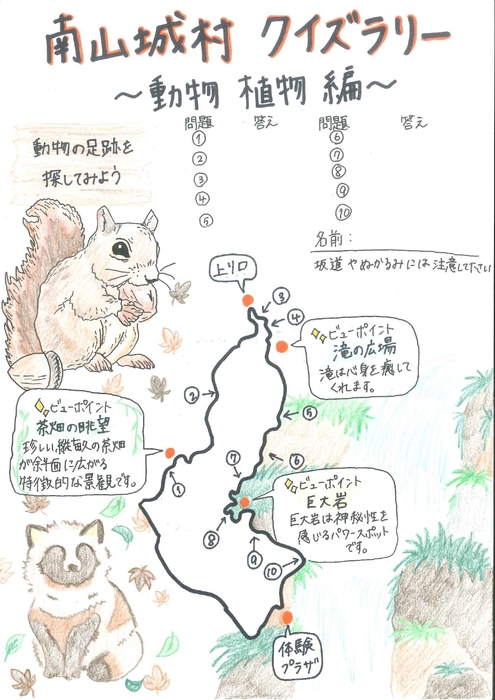 南山城村 クイズラリー
〜動物 植物 編〜
問題 答え 問題 答え
① ⑥
② ⑦
③ ⑧
④ ⑨
⑤ ⑩
名前:
坂道やぬかるみには注意して下さい
動物の足跡を
探してみよう
上り口
③
④
ビューポイント
滝の広場
滝は心身を癒して
くれます。
②
⑤
ビューポイント
茶畑の眺望
珍しい縦畝の茶畑
が斜面に広がる
特徴的な景観です。
①
⑦
⑥
ビューポイント
巨大岩
巨大岩は神秘性を
感じるパワースポット
です。
⑧
⑨
⑩
体験
プラザ